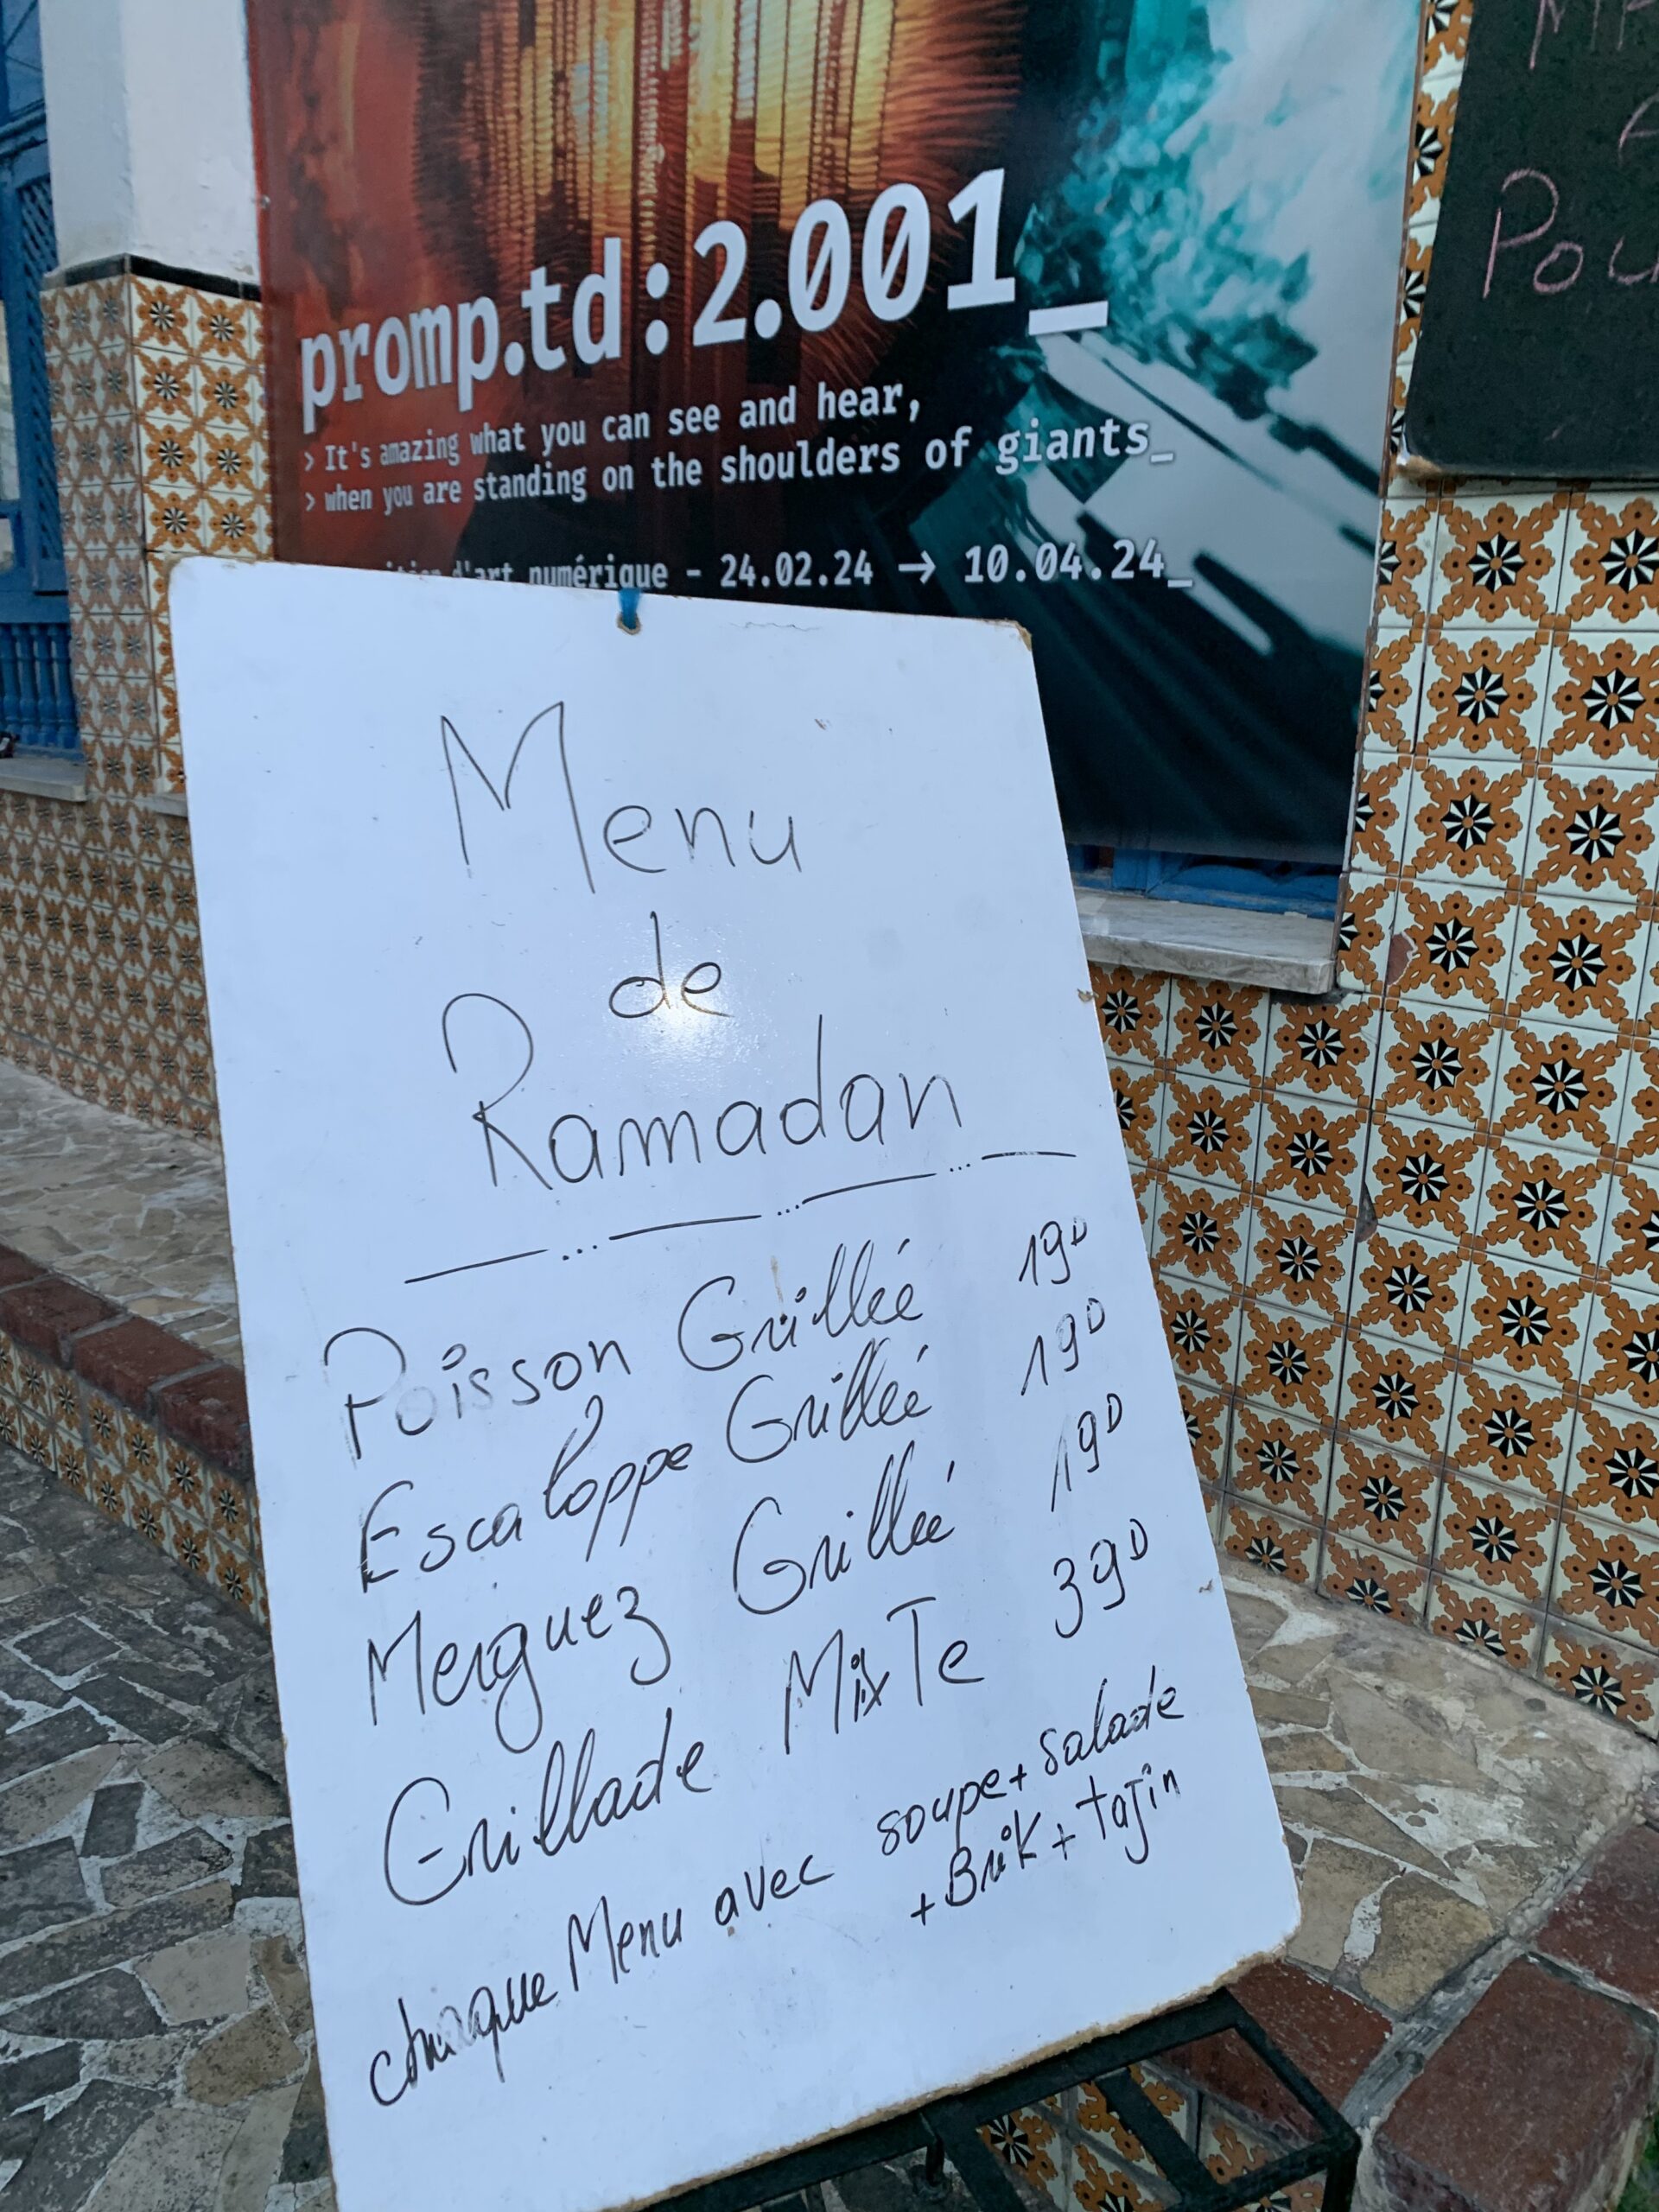 promp.td:2.001_
> It's amazing what you can see and hear,
> when you are standing on the shoulders of giants_
d'art numérique - 24.02.24 → 10.04.24_
Menu
de
Ramadan
Poisson Grillée 19D
Escaloppe Grillée 19D
Merguez Grillée 19D
Grillade MixTe 39D
chaque Menu avec soupe + salade
+ Brik + tajin